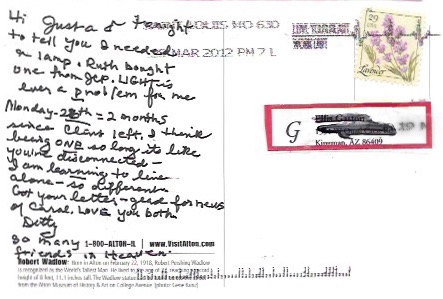 Hi Just a
to tell you I needed
a lamp. Ruth bought
one from JCP. LIGHT is
ever a problem for me
Monday - 28th - 2 months
since Clent left. I think
being ONE so long its like
you're disconnected -
I am learning to live
alone - so different
Got your letter - glad for news
of Carol. LOVE you both
Ditty
So many
friends in Heaven
SAINT LOUIS MO 630
MAR 2012 PM 7 L
29
USA
Lavender
G
Kingman, AZ 86409
1-800-ALTON-IL | www.VisitAlton.com
Robert Wadlow: Born in Alton on February 22, 1918, Robert Pershing Wadlow
is recognized as the World's Tallest Man. He lived to the age of 22, reaching a record
height of 8 feet, 11.1 inches tall. The Wadlow statue
from the Alton Museum of History & Art on College Avenue. (photo: Gene Kunz)